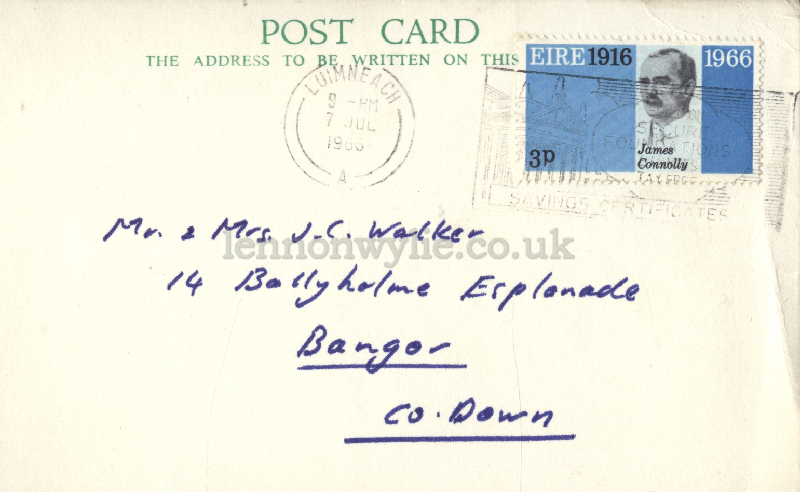 POST CARD
THE ADDRESS TO BE WRITTEN ON THIS
EIRE 1916 1966
James
Connolly
3p
LUIMNEACH
9 -PM
7 JUL
1966
A
SECURE
FOUNDATIONS
TAX FREE
SAVINGS CERTIFICATES
Mr. & Mrs J.C. Walker
lennonwylie.co.uk
14 Ballyholme Esplanade
Bangor
Co. Down